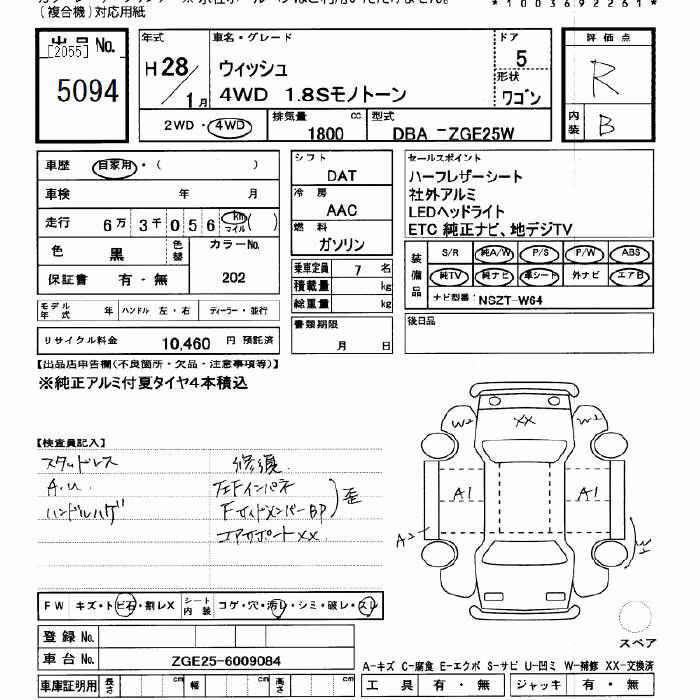 (複合機)対応用紙
*1003692261*
出品No.
[2055]
5094
年式
H28/1月
車名・グレード
ウィッシュ
4WD 1.8Sモノトーン
ドア
5
形状
ワゴン
2WD・4WD
排気量
1800 cc
型式
DBA -ZGE25W
評価点
R
内装
B
車歴 自家用・( )
車検 年 月
走行 6万3千056 km マイル ( )
色 黒 色替 カラーNo.
保証書 有・無 202
モデル年式 年 ハンドル 左・右 ディーラー・並行
リサイクル料金 10,460 円 預託済
シフト
DAT
冷房
AAC
燃料
ガソリン
乗車定員 7 名
積載量 kg
総重量 kg
書類期限
月 日
セールスポイント
ハーフレザーシート
社外アルミ
LEDヘッドライト
ETC 純正ナビ、地デジTV
装備品
S/R 純A/W P/S P/W ABS
純TV 純ナビ 革シート 外ナビ エアB
ナビ型番: NSZT-W64
後日品
【出品店申告欄(不良箇所・欠品・注意事項等)】
※純正アルミ付夏タイヤ4本積込
【検査員記入】
スタッドレス
A.W.
ハンドルハゲ
修復
左Fインパネ
FサイドメンバーBP
歪
エアサポートXX
W2
XX
W1
A1
A1
A2
W1
スペア
FW キズ・トビ石・割レX シート内装 コゲ・穴・汚レ・シミ・破レ・スレ
登録No.
車台No. ZGE25-6009084
車庫証明用 長さ cm 幅 cm 高さ cm
A-キズ C-腐食 E-エクボ S-サビ U-凹ミ W-補修 XX-交換済
工具 有・無 ジャッキ 有・無